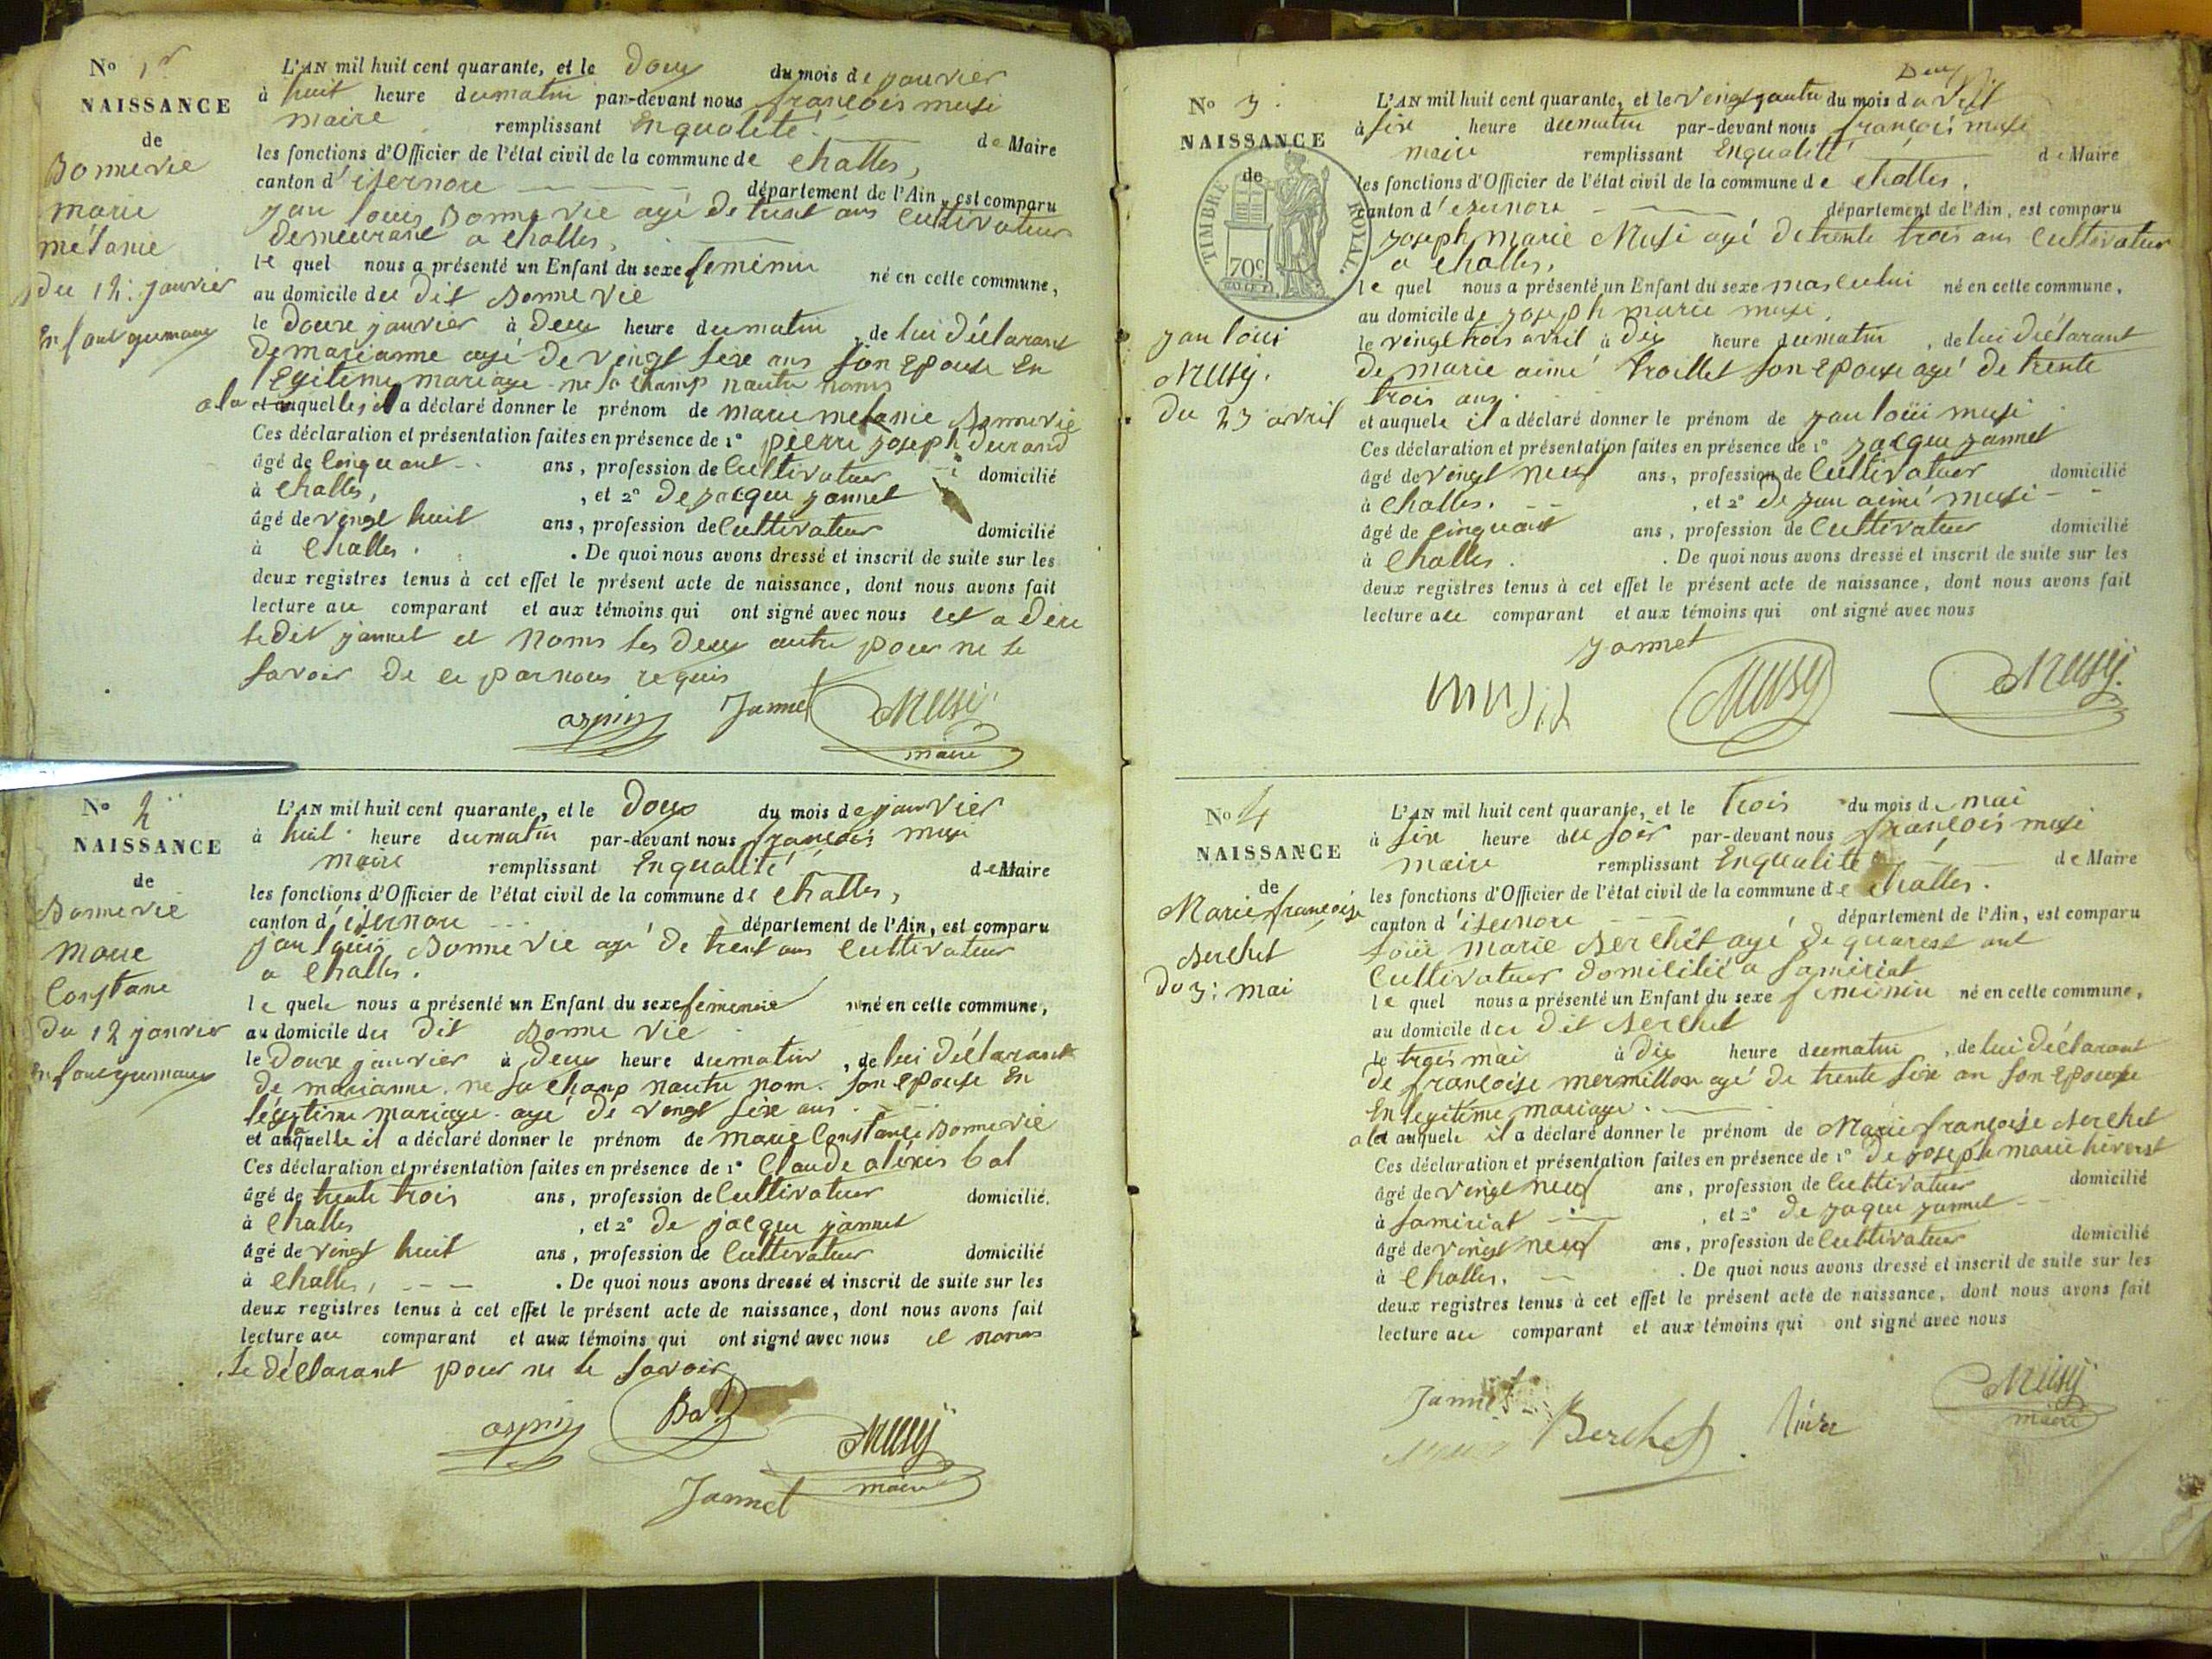 No 1er
NAISSANCE
de
Bonnevie
marie
mélanie
du 12: janvier
L'AN mil huit cent quarante, et le douze du mois de janvier
à huit heure du matin par-devant nous françois musi
maire remplissant En qualité de Maire
les fonctions d'Officier de l'état civil de la commune de challes,
canton d'isernore département de l'Ain, est comparu
jan louis Bonnevie agé de trent ans cultivateur
demeurant a challes,
le quel nous a présenté un Enfant du sexe feminin né en cette commune,
au domicile du dit Bonnevie
le douze janvier à deux heure du matin, de lui déclarant
de marianne agé de vingt sixe ans son epouse En
legitime mariage ne sa champ nautre noms
a la et auquelles il a déclaré donner le prénom de marie melanie Bonnevie
Ces déclaration et présentation faites en présence de 1° pierre joseph durand
âgé de cinquant ans, profession de cultivateur domicilié
à challes, , et 2° de jacque jannet
âgé de vingt huit ans, profession de cultivateur domicilié
à challes. . De quoi nous avons dressé et inscrit de suite sur les
deux registres tenus à cet effet le présent acte de naissance, dont nous avons fait
lecture au comparant et aux témoins qui ont signé avec nous cet a dire
ledit jannet et noms les deux autre pour ne le
savoir de ce par nous requis
Jannet Musÿ
maire
No 2
NAISSANCE
de
Bonnevie
marie
Constance
du 12 janvier
L'AN mil huit cent quarante, et le douze du mois de janvier
à huit heure du matin par-devant nous françois musi
maire remplissant En qualité de Maire
les fonctions d'Officier de l'état civil de la commune de challes,
canton d'isernore département de l'Ain, est comparu
jan louis Bonnevie agé de trent ans cultivateur
a challes.
le quele nous a présenté un Enfant du sexe feminin né en cette commune,
au domicile du dit Bonne vie
le douze janvier à deux heure du matin, de lui déclarant
de marianne. ne sa champ nautre nom. son epouse En
légitime mariage. agé de vingt sixe ans.
et auquelle il a déclaré donner le prénom de marie Constance Bonnevie
Ces déclaration et présentation faites en présence de 1° Claude aléxis bal
âgé de trente trois ans, profession de cultivateur domicilié.
à challes , et 2° de jacque jannet
âgé de vingt huit ans, profession de cultivateur domicilié
à challes, . De quoi nous avons dressé et inscrit de suite sur les
deux registres tenus à cet effet le présent acte de naissance, dont nous avons fait
lecture au comparant et aux témoins qui ont signé avec nous et noms
le déclarant pour ne le savoir
Bal Musÿ
maire
Jannet
No 3
NAISSANCE
de
TIMBRE ROYAL.
70c
jan loüi
Musÿ.
du 23 avril
L'AN mil huit cent quarante, et le vingt quatre du mois d avril
à sixe heure du matin par-devant nous françois musi
maire remplissant En qualité de Maire
les fonctions d'Officier de l'état civil de la commune de challes.
canton d'esernore département de l'Ain, est comparu
joseph marie Musi agé de trente trois ans cultivateur
a challes.
le quel nous a présenté un Enfant du sexe masculin né en cette commune,
au domicile de joseph marie musi,
le vingt trois avril à dix heure du matin, de lui déclarant
de marie aimé troillet son epouse agé de trente
trois ans.
et auquele il a déclaré donner le prénom de jan loüi musi
Ces déclaration et présentation faites en présence de 1° jacque jannet
âgé de vingt neuf ans, profession de cultivateur domicilié
à challes. , et 2° de jan aimé musi
âgé de cinquant ans, profession de cultivateur domicilié
à challes. . De quoi nous avons dressé et inscrit de suite sur les
deux registres tenus à cet effet le présent acte de naissance, dont nous avons fait
lecture au comparant et aux témoins qui ont signé avec nous
Jannet
Musy Musÿ.
No 4
NAISSANCE
de
Marie françoise
Berchet
du 3: mai
L'AN mil huit cent quarante, et le trois du mois de mai
à sixe heure du soir par-devant nous françois musi
maire remplissant En qualité de Maire
les fonctions d'Officier de l'état civil de la commune de challes.
canton d'isernore département de l'Ain, est comparu
loüi marie Berchet agé de quarest ant
cultivateur domicilié a samiriat
le quel nous a présenté un Enfant du sexe feminin né en cette commune,
au domicile du dit Berchet
le trois mai à dix heure du matin, de lui déclarant
de françoise mermillon agé de trente sixe an son epouse
En legitime mariage.
a la et auquele il a déclaré donner le prénom de Marie françoise Berchet
Ces déclaration et présentation faites en présence de 1° de joseph marie
âgé de vingt neuf ans, profession de cultivateur domicilié
à samiriat , et 2° de jaque jannet
âgé de vingt neuf ans, profession de cultivateur domicilié
à challes. . De quoi nous avons dressé et inscrit de suite sur les
deux registres tenus à cet effet le présent acte de naissance, dont nous avons fait
lecture au comparant et aux témoins qui ont signé avec nous
Jannet Berchet Musÿ
maire